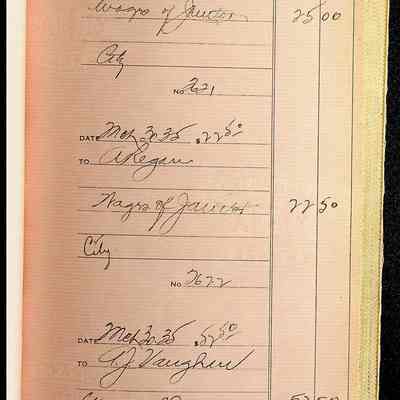 Wages of Janitor 25 00
City
No. 2621
DATE Mch 30 35 $22 50
TO A Regan
Wages of Janitor 22 50
City
No 2622
DATE Mch 30 35 52 50
TO A J Vaughn
52 50